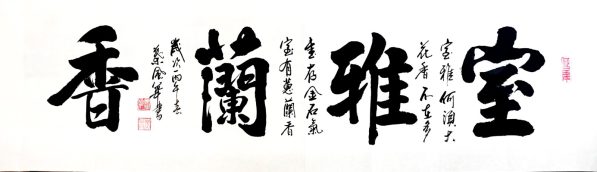 室
室雅何須大
花香不在多
雅
書存金石氣
室有蕙蘭香
蘭
歲次丙午春
香